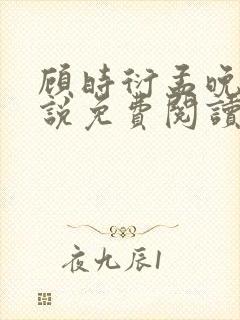 顾时衍孟晚
說免費閱讀
夜九辰1